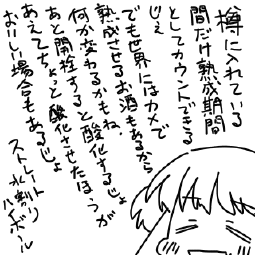 樽に入れている
間だけ熟成期間
としてカウントできる
じぇ
でも世界にはカメで
熟成させるお酒もあるから
何か変わるかもね、
あと開栓すると酸化するじょ
あえてちょっと酸化させたほうが
おいしい場合もあるじょ
ストレート
水割り
ハイボール